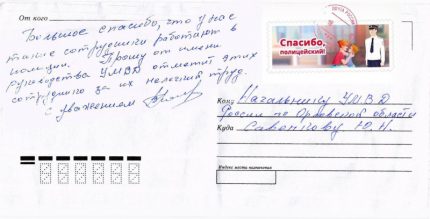 От кого
Большое спасибо, что у нас
такие сотрудники работают в
полиции. Прошу от имени
руководства УМВД отметит этих
сотрудников за их нелегкий труд.
С уважением
ПОЧТА РОССИИ
Спасибо,
полицейский!
Кому Начальнику УМВД
России по Орловской области
Куда Савенкову Ю.Н.
Индекс места назначения